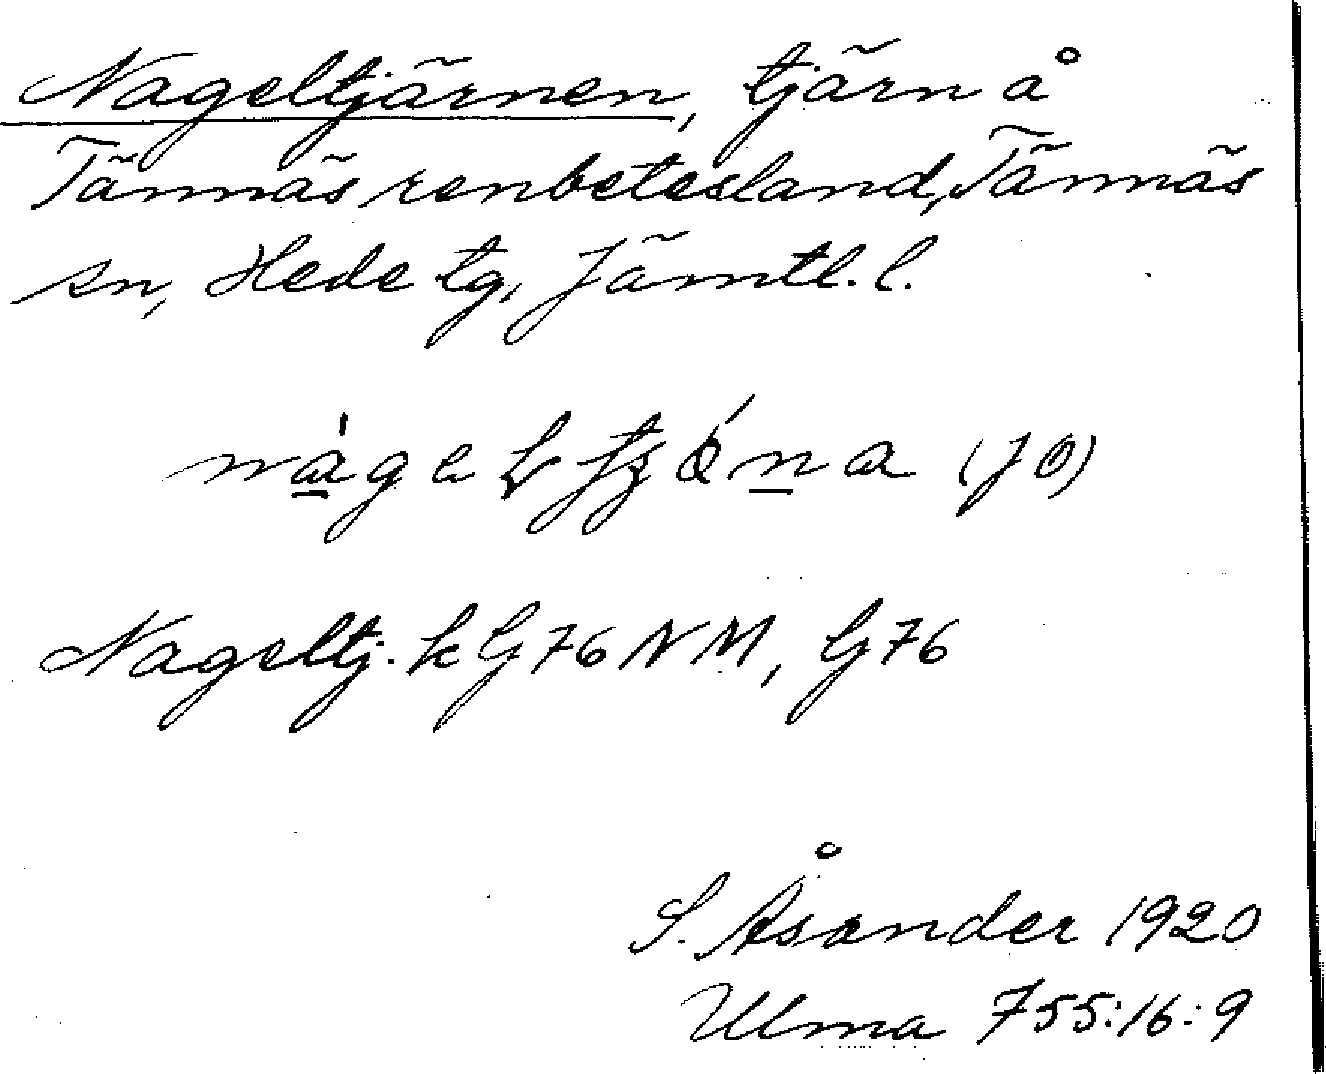 Nageltjärnen, tjärn å
Tännäs renbetesland, Tännäs
sn, Hede tg, Jämtl. l.
(JÖ)
Nageltj. k G76 NM, G76
S. Åsander 1920
Ulma 755:16:9